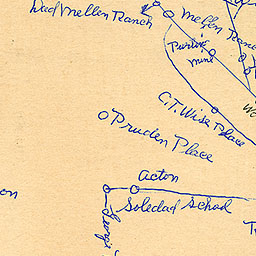 Dad Mellen Ranch
Mellen Ran
Purivie
mine
C.T. Wise Place
Pruden Place
Acton
Soledad Schad
on